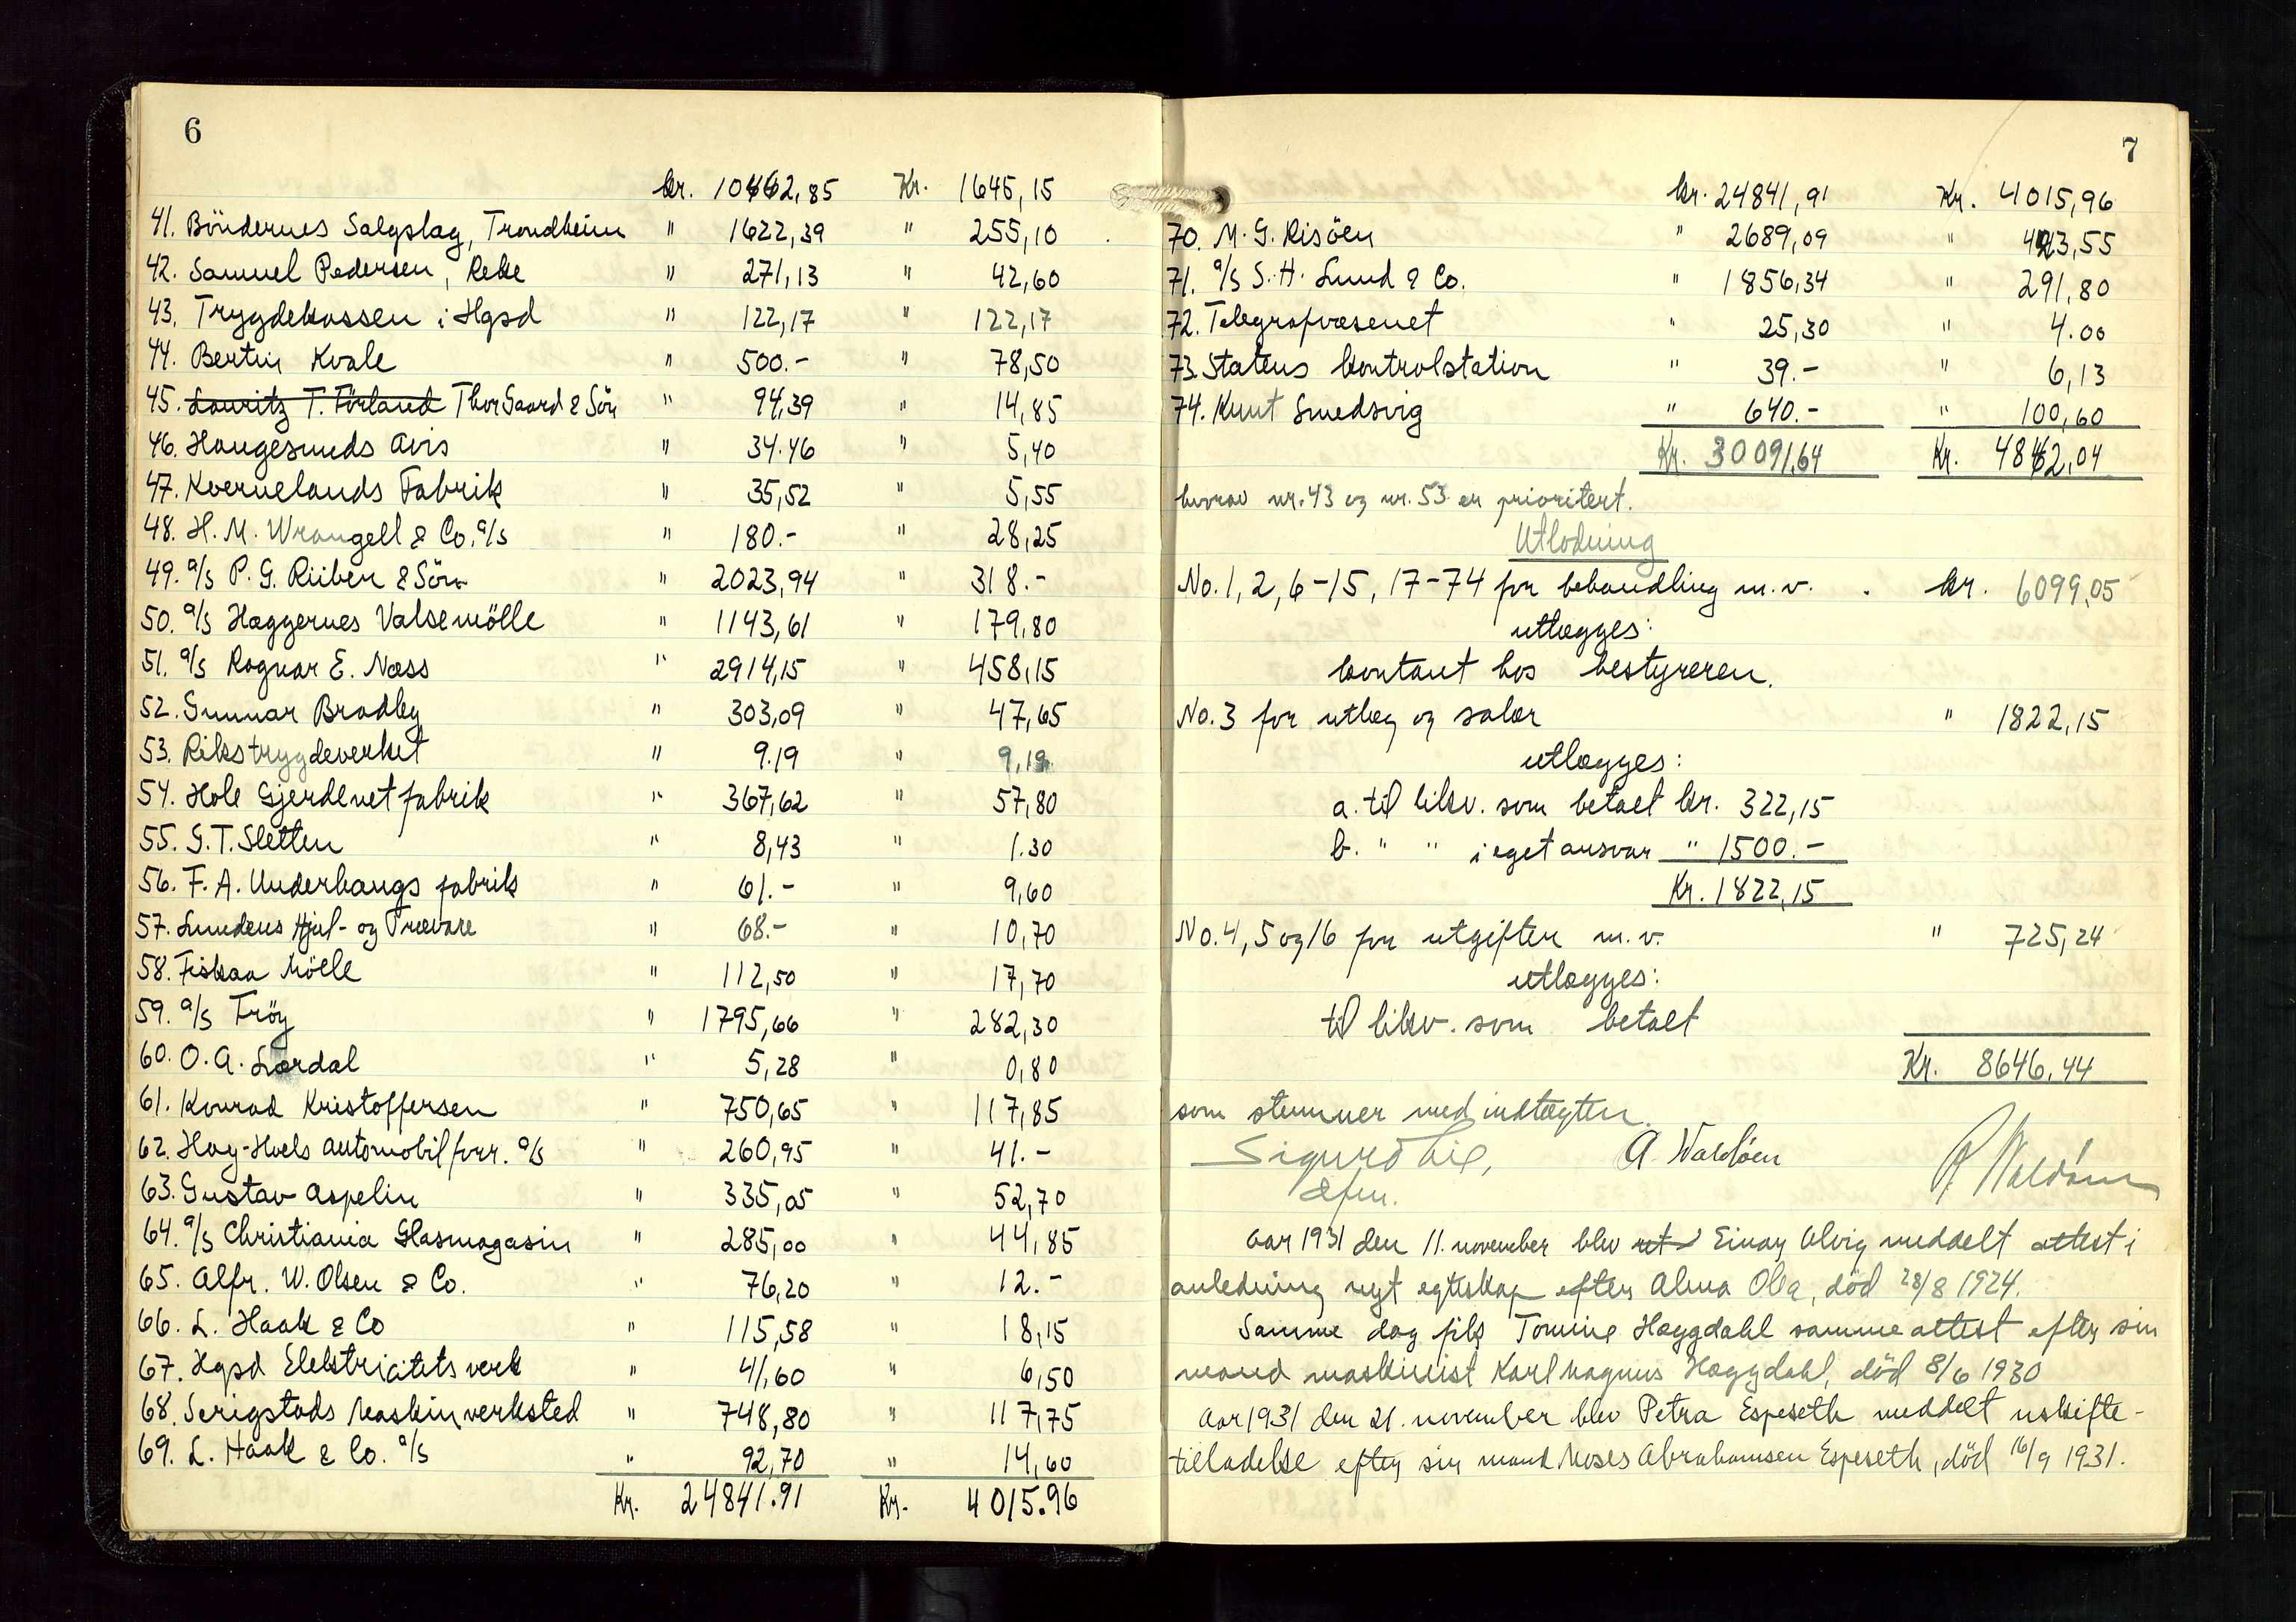 6
kr. 10462,85 Kr. 1645,15
41. Böndernes Salgslag, Trondheim " 1622,39 " 255,10
42. Samuel Pedersen, Reke " 271,13 " 42,60
43. Trygdekassen i Hgsd " 122,17 " 122,17
44. Bertin Kvale " 500.- " 78,50
45. Lauritz T. Förland Thor Saard & Sön " 94,39 " 14,85
46. Haugesunds Avis " 34.46 " 5,40
47. Kvernelands Fabrik " 35,52 " 5,55
48. H. M. Wrangell & Co. a/s " 180.- " 28,25
49. a/s P. G. Riiber & Sön " 2023,94 " 318.-
50. a/s Hæggernes Valsemölle " 1143,61 " 179,80
51. a/s Ragnar E. Næss " 2914,15 " 458,15
52. Gunnar Bradley " 303,09 " 47,65
53. Rikstrygdeverket " 9.19 " 9,19
54. Hole Gjerdenetfabrik " 367,62 " 57,80
55. G. T. Sletten " 8,43 " 1.30
56. F. A. Underhaugs fabrik " 61.- " 9,60
57. Lundens Hjul- og Trævare " 68.- " 10,70
58. Fiskaa Mölle " 112,50 " 17,70
59. a/s Tröy " 1795,66 " 282,30
60. O. A. Lærdal " 5,28 " 0,80
61. Konrad Kristoffersen " 750,65 " 117,85
62. Hay-Hoels automobilforr. a/s " 260,95 " 41.-
63. Gustav Aspelin " 335,05 " 52,70
64. a/s Christiania Glasmagasin " 285,00 " 44,85
65. Alfr. W. Olsen & Co. " 76,20 " 12.-
66. L. Haak & Co " 115,58 " 18,15
67. Hgsd Elektricitetsverk " 41,60 " 6,50
68. Serigstads Maskinverksted " 748,80 " 117,75
69. L. Haak & Co. a/s " 92,70 " 14,60
Kr. 24841.91 Kr. 4015.96
7
kr. 24841,91 Kr. 4015,96
70. M. G. Risöen " 2689,09 " 423,55
71. a/s S. H. Lund & Co. " 1856,34 " 291,80
72. Telegrafvæsenet " 25,30 " 4.00
73. Statens kontrolstation " 39.- " 6,13
74. Knut Smedsvig " 640.- " 100,60
Kr. 30091,64 Kr. 4842,04
hvorav nr. 43 og nr. 53 er prioritert.
Utlodning
No. 1, 2, 6-15, 17-74 for behandling m. v. . kr. 6099,05
utlægges:
kontant hos bestyreren.
No. 3 for utlæg og salær " 1822,15
utlægges:
a. til likv. som betalt kr. 322,15
b. " " i eget ansvar " 1500.-
Kr. 1822,15
No. 4, 5 og 16 for utgifter m. v. " 725,24
utlægges:
til likv. som betalt
Kr. 8646,44
som stemmer med indtægten.
Sigurd Lie, A. Waldöen R. Waldöen
efm.
Aar 1931 den 11. november blev ut Einar Alvig meddelt attest i
anledning nyt egteskap efter Alma Olea, död 28/8 1924.
Samme dag fik Tomine Heggdahl samme attest efter sin
mand maskinist Karl Magnus Heggdahl, död 8/6 1930
Aar 1931 den 21. november blev Petra Espeseth meddelt uskifte-
tilladelse efter sin mand Moses Abrahamsen Espeseth, död 16/9 1931.